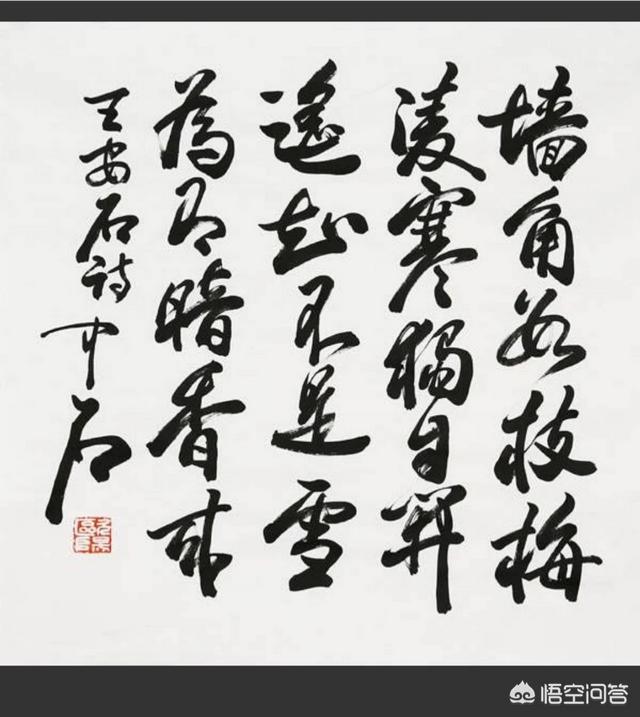 墙角数枝梅
凌寒独自开
遥知不是雪
為有暗香来
王安石詩 中石
悟空问答